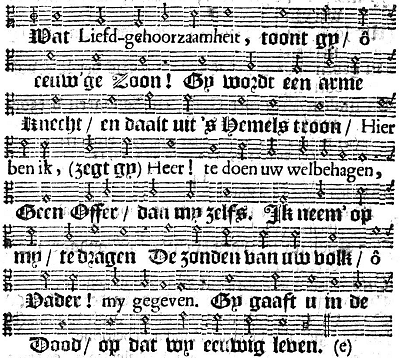 Wat Liefd-gehoorzaamheit, toont gy/ ô
eeuw'ge Zoon! Gy wordt een arme
Knecht/ en daalt uit 's Hemels troon/ Hier
ben ik, (zegt gy) Heer! te doen uw welbehagen,
Geen Offer/ dan my zelfs. Ik neem' op
my/ te dragen De zonden van uw volk/ ô
Vader! my gegeven. Gy gaaft u in de
Dood/ op dat wy eeuwig leven. (e)